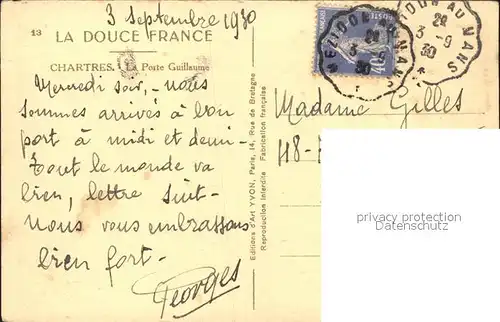 3 Septembre 1930
13
LA DOUCE FRANCE
CHARTRES. La Porte Guillaume
Mercredi soir, nous
sommes arrivés à bon
port à midi et demi-
Tout le monde va
bien, lettre suit-
Nous vous embrassons
bien fort-
Georges
Editions d'Art YVON, Paris, 14, Rue de Bretagne
Reproduction Interdite Fabrication française
POSTES
40
AU MANS
3 -9
30
AU MANS
3 -9
30
Madame Gilles
privacy protection
Datenschutz